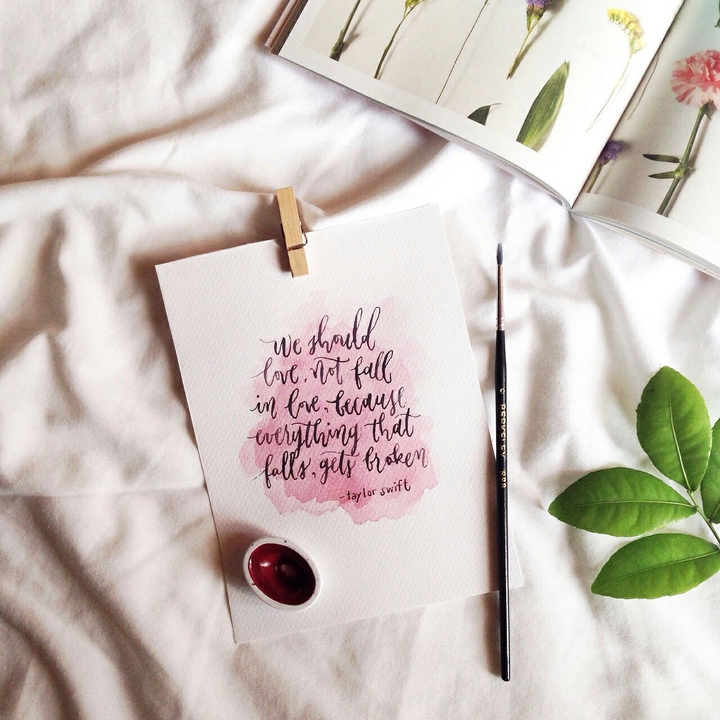 we should
love, not fall
in love, because
everything that
falls, gets broken
-taylor swift
BERKELEY